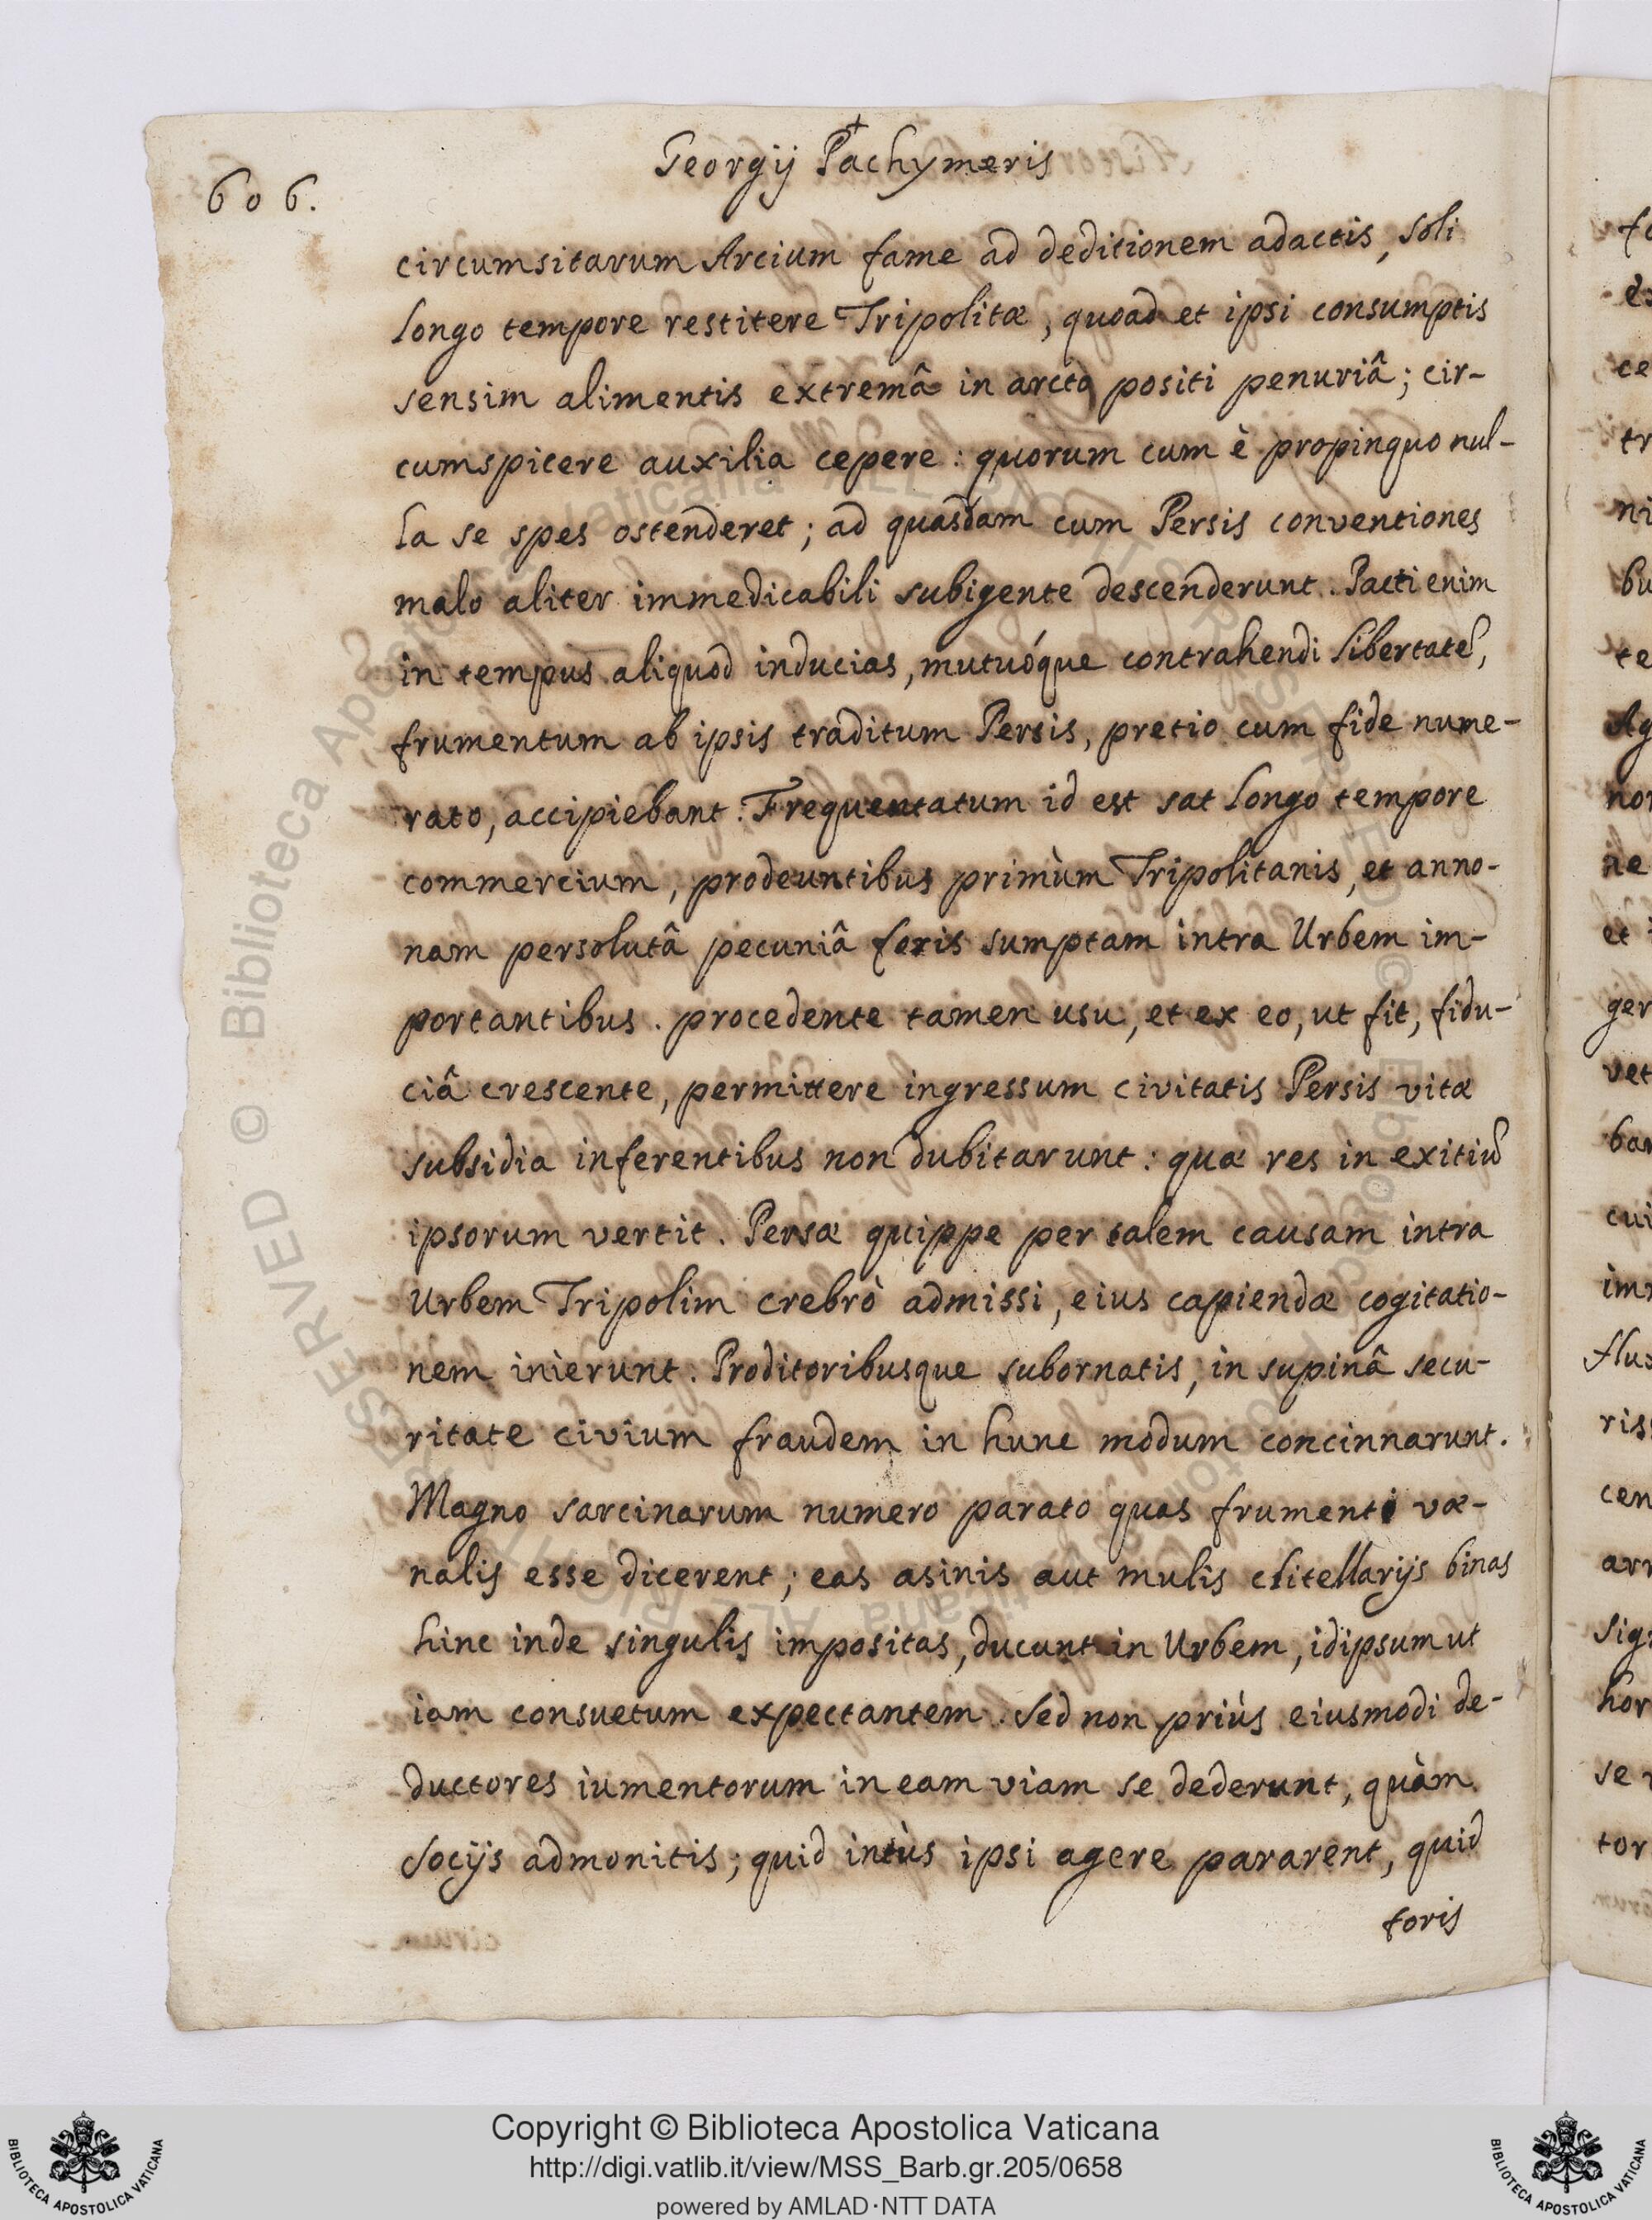 Georgij Pachymeris
606.
circumsitarum Arcium fame ad deditionem adactis, soli
longo tempore restitere Tripolitæ, quoad et ipsi consumptis
sensim alimentis extremâ in arcto positi penuriâ; cir-
cumspicere auxilia cepere: quorum cum è propinquo nul-
la se spes ostenderet; ad quasdam cum Persis conventiones
malo aliter immedicabili subigente descenderunt. Pacti enim
in tempus aliquod inducias, mutuóque contrahendi libertatẽ,
frumentum ab ipsis traditum Persis, pretio cum fide nume-
rato, accipiebant. Frequentatum id est sat longo tempore
commercium, prodeuntibus primùm Tripolitanis, et anno-
nam persolutâ pecuniâ foris sumptam intra Urbem im-
portantibus. procedente tamen usu, et ex eo, ut fit, fidu-
ciâ crescente, permittere ingressum civitatis Persis vitæ
subsidia inferentibus non dubitarunt: quæ res in exitiũ
ipsorum vertit. Persæ quippe per talem causam intra
Urbem Tripolim crebrò admissi, eius capiendæ cogitatio-
nem inierunt. Proditoribusque subornatis, in supinâ secu-
ritate civium fraudem in hunc modum concinnarunt.
Magno sarcinarum numero parato quas frumenti væ-
nalis esse dicerent; eas asinis aut mulis clitellarijs binas
hinc inde singulis impositas, ducunt in Urbem, idipsum ut
iam consuetum expectantem. Sed non priùs eiusmodi de-
ductores iumentorum in eam viam se dederunt, quàm
Socijs admonitis; quid intùs ipsi agere pararent, quid
foris
Copyright © Biblioteca Apostolica Vaticana
http://digi.vatlib.it/view/MSS_Barb.gr.205/0658
powered by AMLAD·NTT DATA
BIBLIOTECA APOSTOLICA VATICANA
BIBLIOTECA APOSTOLICA VATICANA